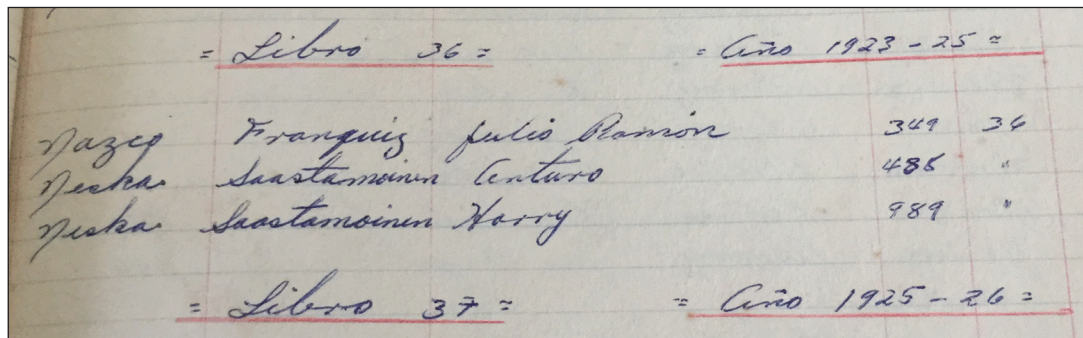 = Libro 36 = = Año 1923-25 =
Nazco Franquiz Julio Ramón 349 36
Neska Saastamoinen Arturo 488 "
Neska Saastamoinen Harry 989 "
= Libro 37 = = Año 1925-26 =